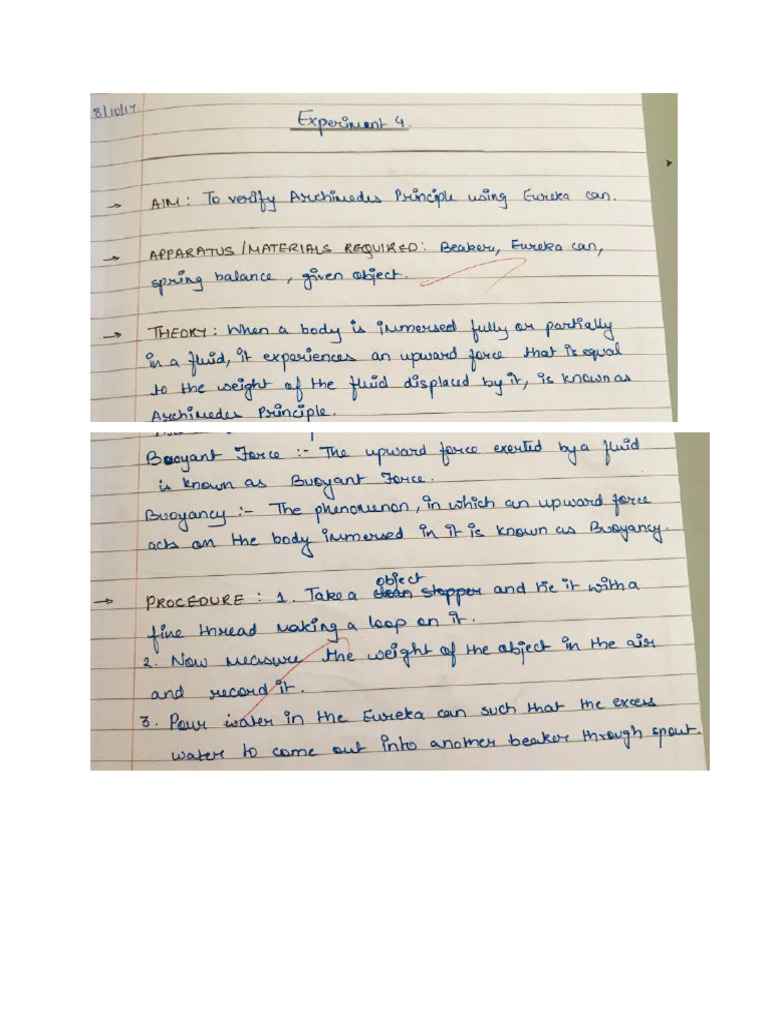 8/10/17
Experiment 4.
→ AIM: To verify Archimedes Principle using Eureka can.
→ APPARATUS/MATERIALS REQUIRED: Beaker, Eureka can,
spring balance, given object.
→ THEORY: When a body is immersed fully or partially
in a fluid, it experiences an upward force that is equal
to the weight of the fluid displaced by it, is known as
Archimedes Principle.
Buoyant Force :- The upward force exerted by a fluid
is known as Buoyant Force.
Buoyancy :- The phenomenon, in which an upward force
acts on the body immersed in it is known as Buoyancy.
object
→ PROCEDURE: 1. Take a clean stopper and tie it with a
fine thread making a loop on it.
2. Now measure the weight of the object in the air
and record it.
3. Pour water in the Eureka can such that the excess
water to come out into another beaker through spout.